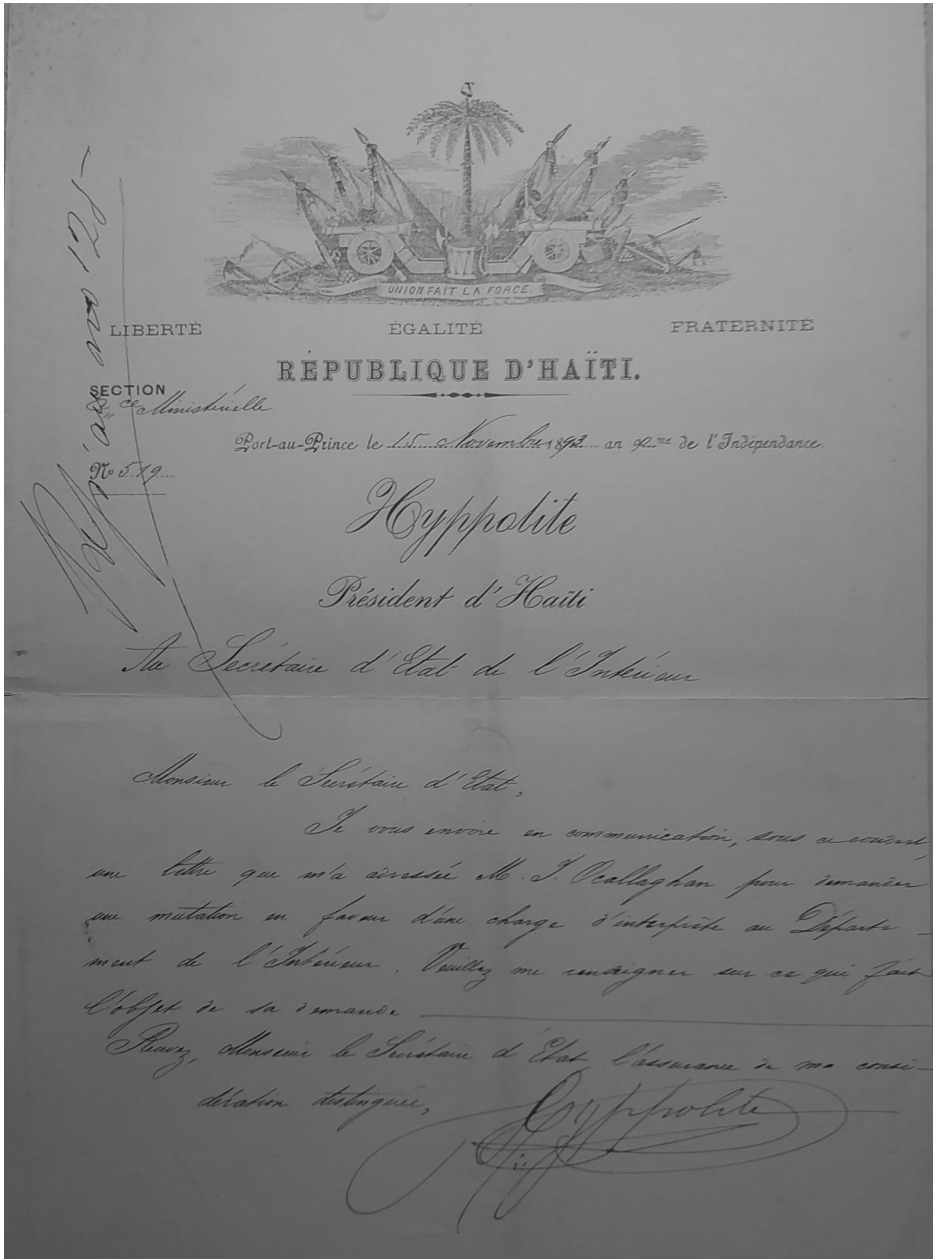 UNION FAIT LA FORCE
LIBERTÉ ÉGALITÉ FRATERNITÉ
RÉPUBLIQUE D'HAÏTI.
SECTION
Ministérielle
Port-au-Prince le 15 Novembre 1892 an 92me de l'Indépendance
No 519
Hyppolite
Président d'Haïti
Au Secrétaire d'Etat de l'Intérieur
Monsieur le Secrétaire d'Etat,
Je vous envoie en communication, sous ce couvert,
une lettre que m'a adressée M. J. Ocallaghan pour demander
une mutation en faveur d'une charge d'interprète au Départe-
ment de l'Intérieur. Veuillez me renseigner sur ce qui fait
l'objet de sa demande
Recevez, Monsieur le Secrétaire d'Etat l'assurance de ma consi-
dération distinguée,
Hyppolite